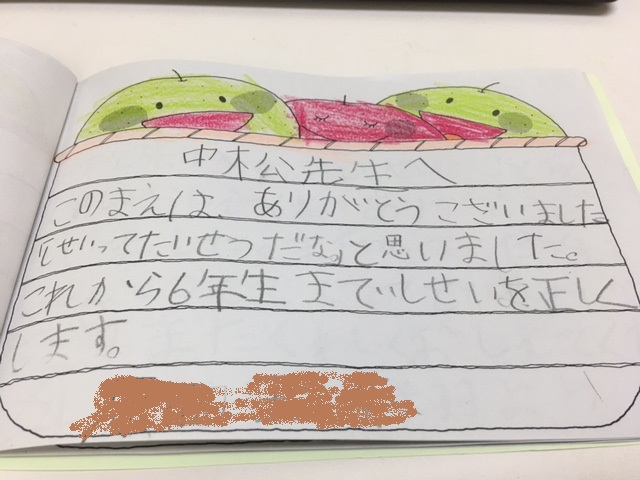 中松先生へ
このまえは、ありがとうございました
「しせいってたいせつだな。」と思いました。
これから6年生までしせいを正しく
します。